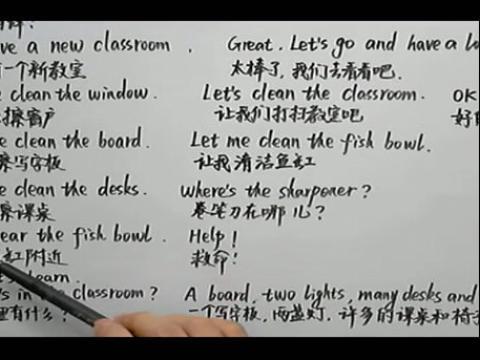 ve a new classroom . Great. Let's go and have a
一个新教室 太棒了,我们去看看吧.
clean the window. Let's clean the classroom. OK
擦窗户 让我们打扫教室吧 好
clean the board. Let me clean the fish bowl.
擦写字板 让我清洁鱼缸
clean the desks. Where's the sharponer?
擦课桌 卷笔刀在哪儿?
ear the fish bowl. Help!
缸附近 救命!
learn.
in the classroom? A board, two lights, many desks and
里有什么? 一个写字板,两盏灯,许多的课桌和椅子